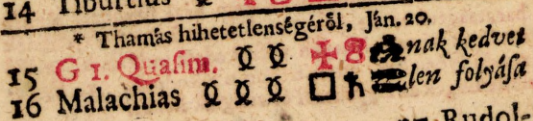 14 Tiburtius
* Thamás hihetetlenségéről, Ján. 20.
15 G 1. Quasim. nak kedvet
16 Malachias □ ♄ len folyása
Rudol-